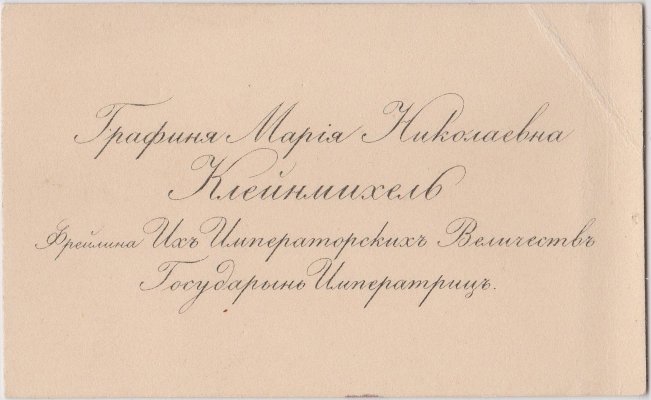 Графиня Марія Николаевна
Клейнмихель
Фрейлина Ихъ Императорскихъ Величествъ
Государынь Императрицъ.